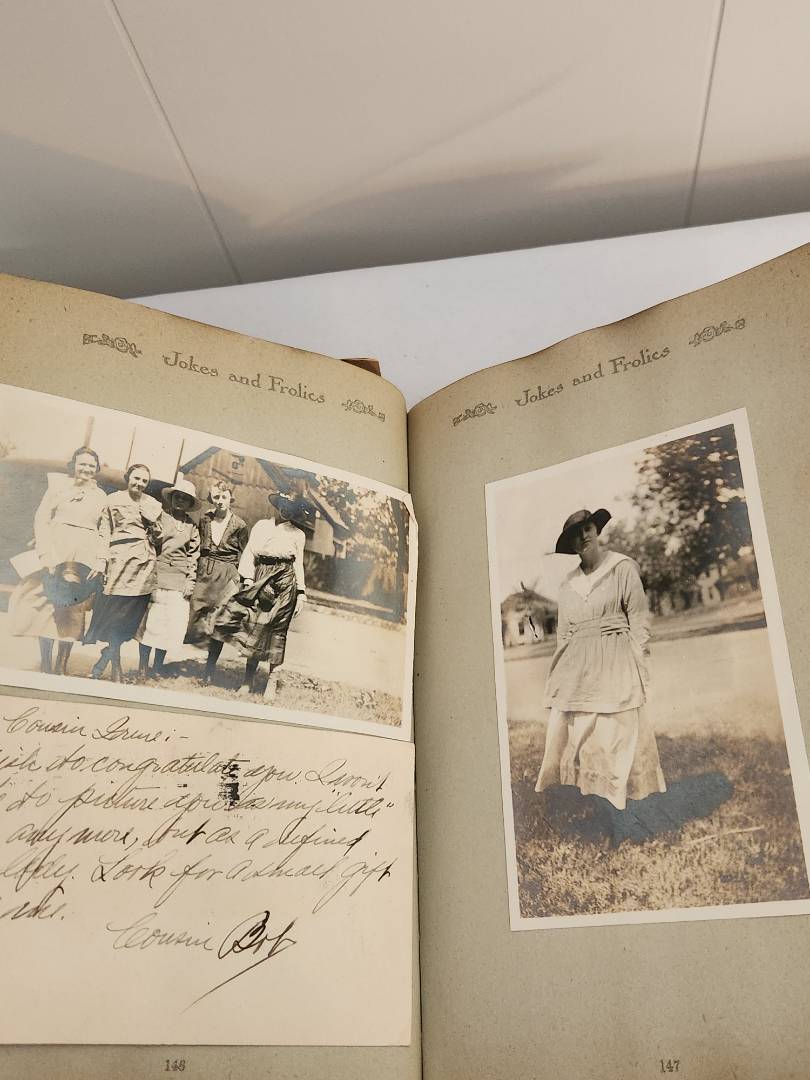 Jokes and Frolics
Cousin Irene:-
to congratulate you. I won't
to picture you as my "little"
any more, but as a refined
lady. Look for a small gift
me.
Cousin Bob
146
Jokes and Frolics
147